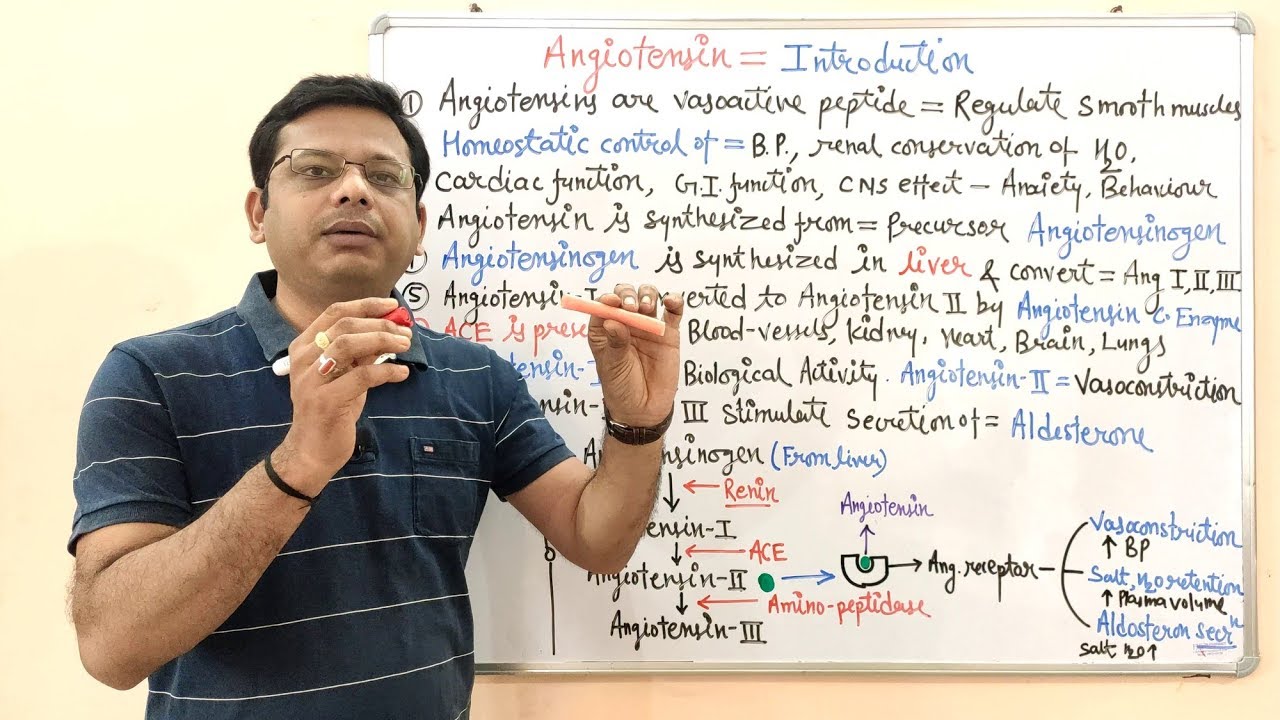 Angiotensin = Introduction
① Angiotensins are vasoactive peptide = Regulate smooth muscles
Homeostatic control of = B.P., renal conservation of H2O,
Cardiac function, G.I. function, CNS effect – Anxiety, Behaviour
Angiotensin is synthesized from = Precursor Angiotensinogen
Angiotensinogen is synthesized in liver & convert = Ang I, II, III
⑤ Angiotensin-I verted to Angiotensin II by Angiotensin C. Enzyme
ACE is prese Blood-vessels, Kidney, Heart, Brain, Lungs
Biological Activity. Angiotensin-II = Vasoconstriction
III stimulate secretion of = Aldesterone
sinogen (From liver)
Renin
Angiotensin
tensin-I
ACE
Angiotensin-II
Amino-peptidase
Angiotensin-III
Ang. receptor
Vasoconstriction
↑ BP
Salt, H2O retention
↑ Plasma volume
Aldosteron secrn
Salt H2O ↑